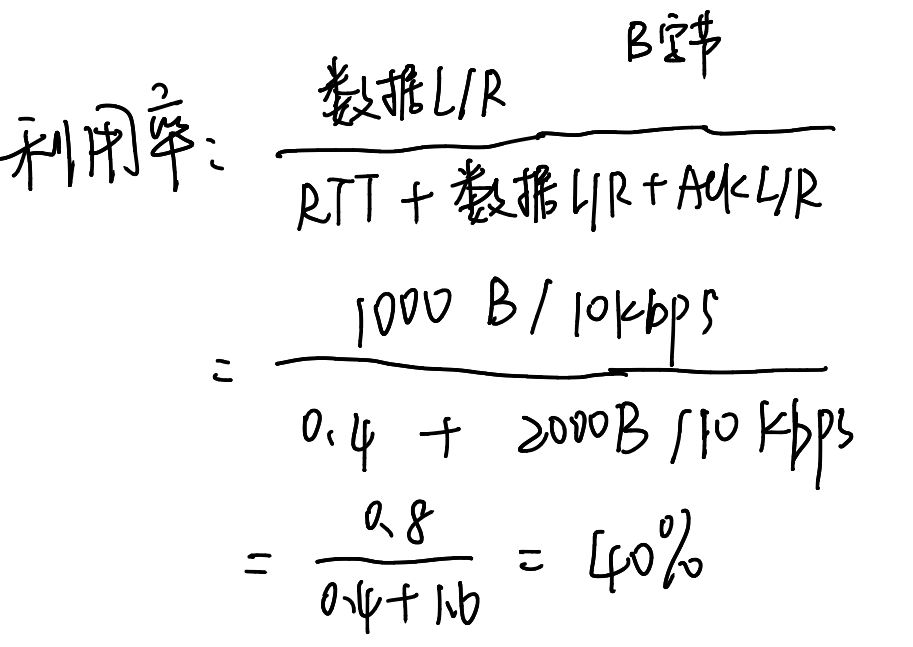 B字节
利用率: 数据L/R
RTT + 数据L/R + ACK L/R
= 1000 B / 10kbps
0.4 + 2000B / 10 Kbps
= 0.8 / 0.4+1.6 = 40%